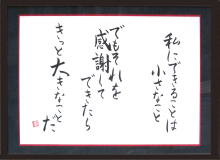 私にできることは
小さなこと
でもそれを
感謝して
できたら
きっと大きなことだ